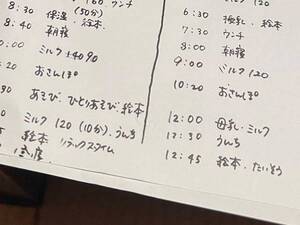 ウンチ
8:30 保湿 (50分)
8:40 絵本
朝寝
:00 ミルク
おさんぽ
30 あそび・ひとりあそび・絵本
ミルク 120 (10分). うんち
絵本 リラックスタイム
6:30 絵本
7:30 ウンチ
8:00 朝寝
9:00 ミルク120
10:20 おさんぽ
12:00 母乳・ミルク
12:30 うんち
12:45 絵本・たいそう